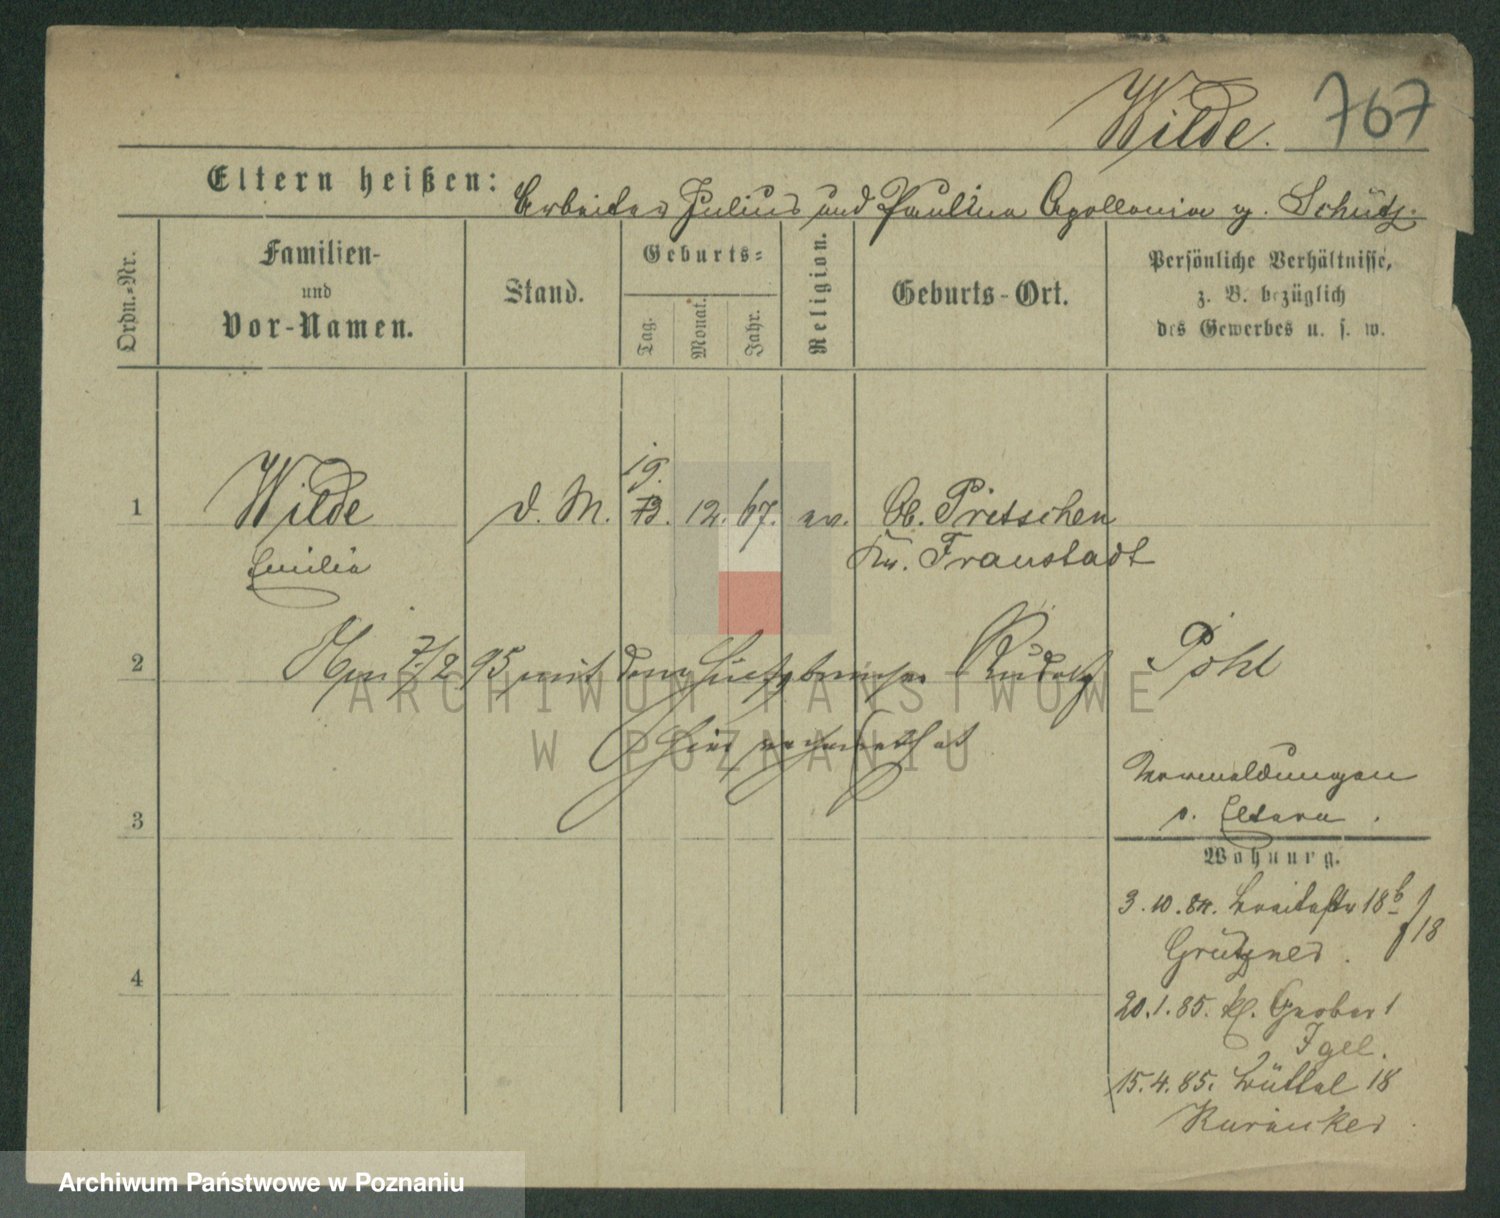 Wilde. 767
Eltern heißen: Arbeiter Julius und Paulina Apollonia g. Schütz.
Ordn.-Nr.
Familien-
und
Vor-Namen.
Stand.
Geburts-
Tag.
Monat.
Jahr.
Religion.
Geburts-Ort.
Persönliche Verhältnisse,
z. B. bezüglich
des Gewerbes u. s. w.
19.
1 Wilde d. M. 13. 12. 67. ev. Ob. Pritschen
Emilia Kr. Fraustadt
2 Am 7/2 95 mit dem Rudolf Pohl
hier verheirathet
Vermeldungen
s. Eltern.
3
Wohnung.
3.10.84. Breitestr 18b
18
Grützner.
4
20.1.85. kl. Gerber 1
Igel.
15.4.85. Büttel 18
ARCHIWUM PAŃSTWOWE
W POZNANIU
Archiwum Państwowe w Poznaniu